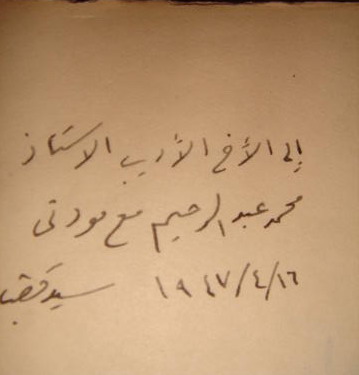 إلى الأخ الأديب الأستاذ
محمد عبد الرحيم مع مودتى
١٦/٤/١٩٤٧ سيد قطب